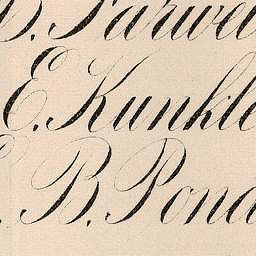 D. Farwel
E. Kunkle
B. Pond